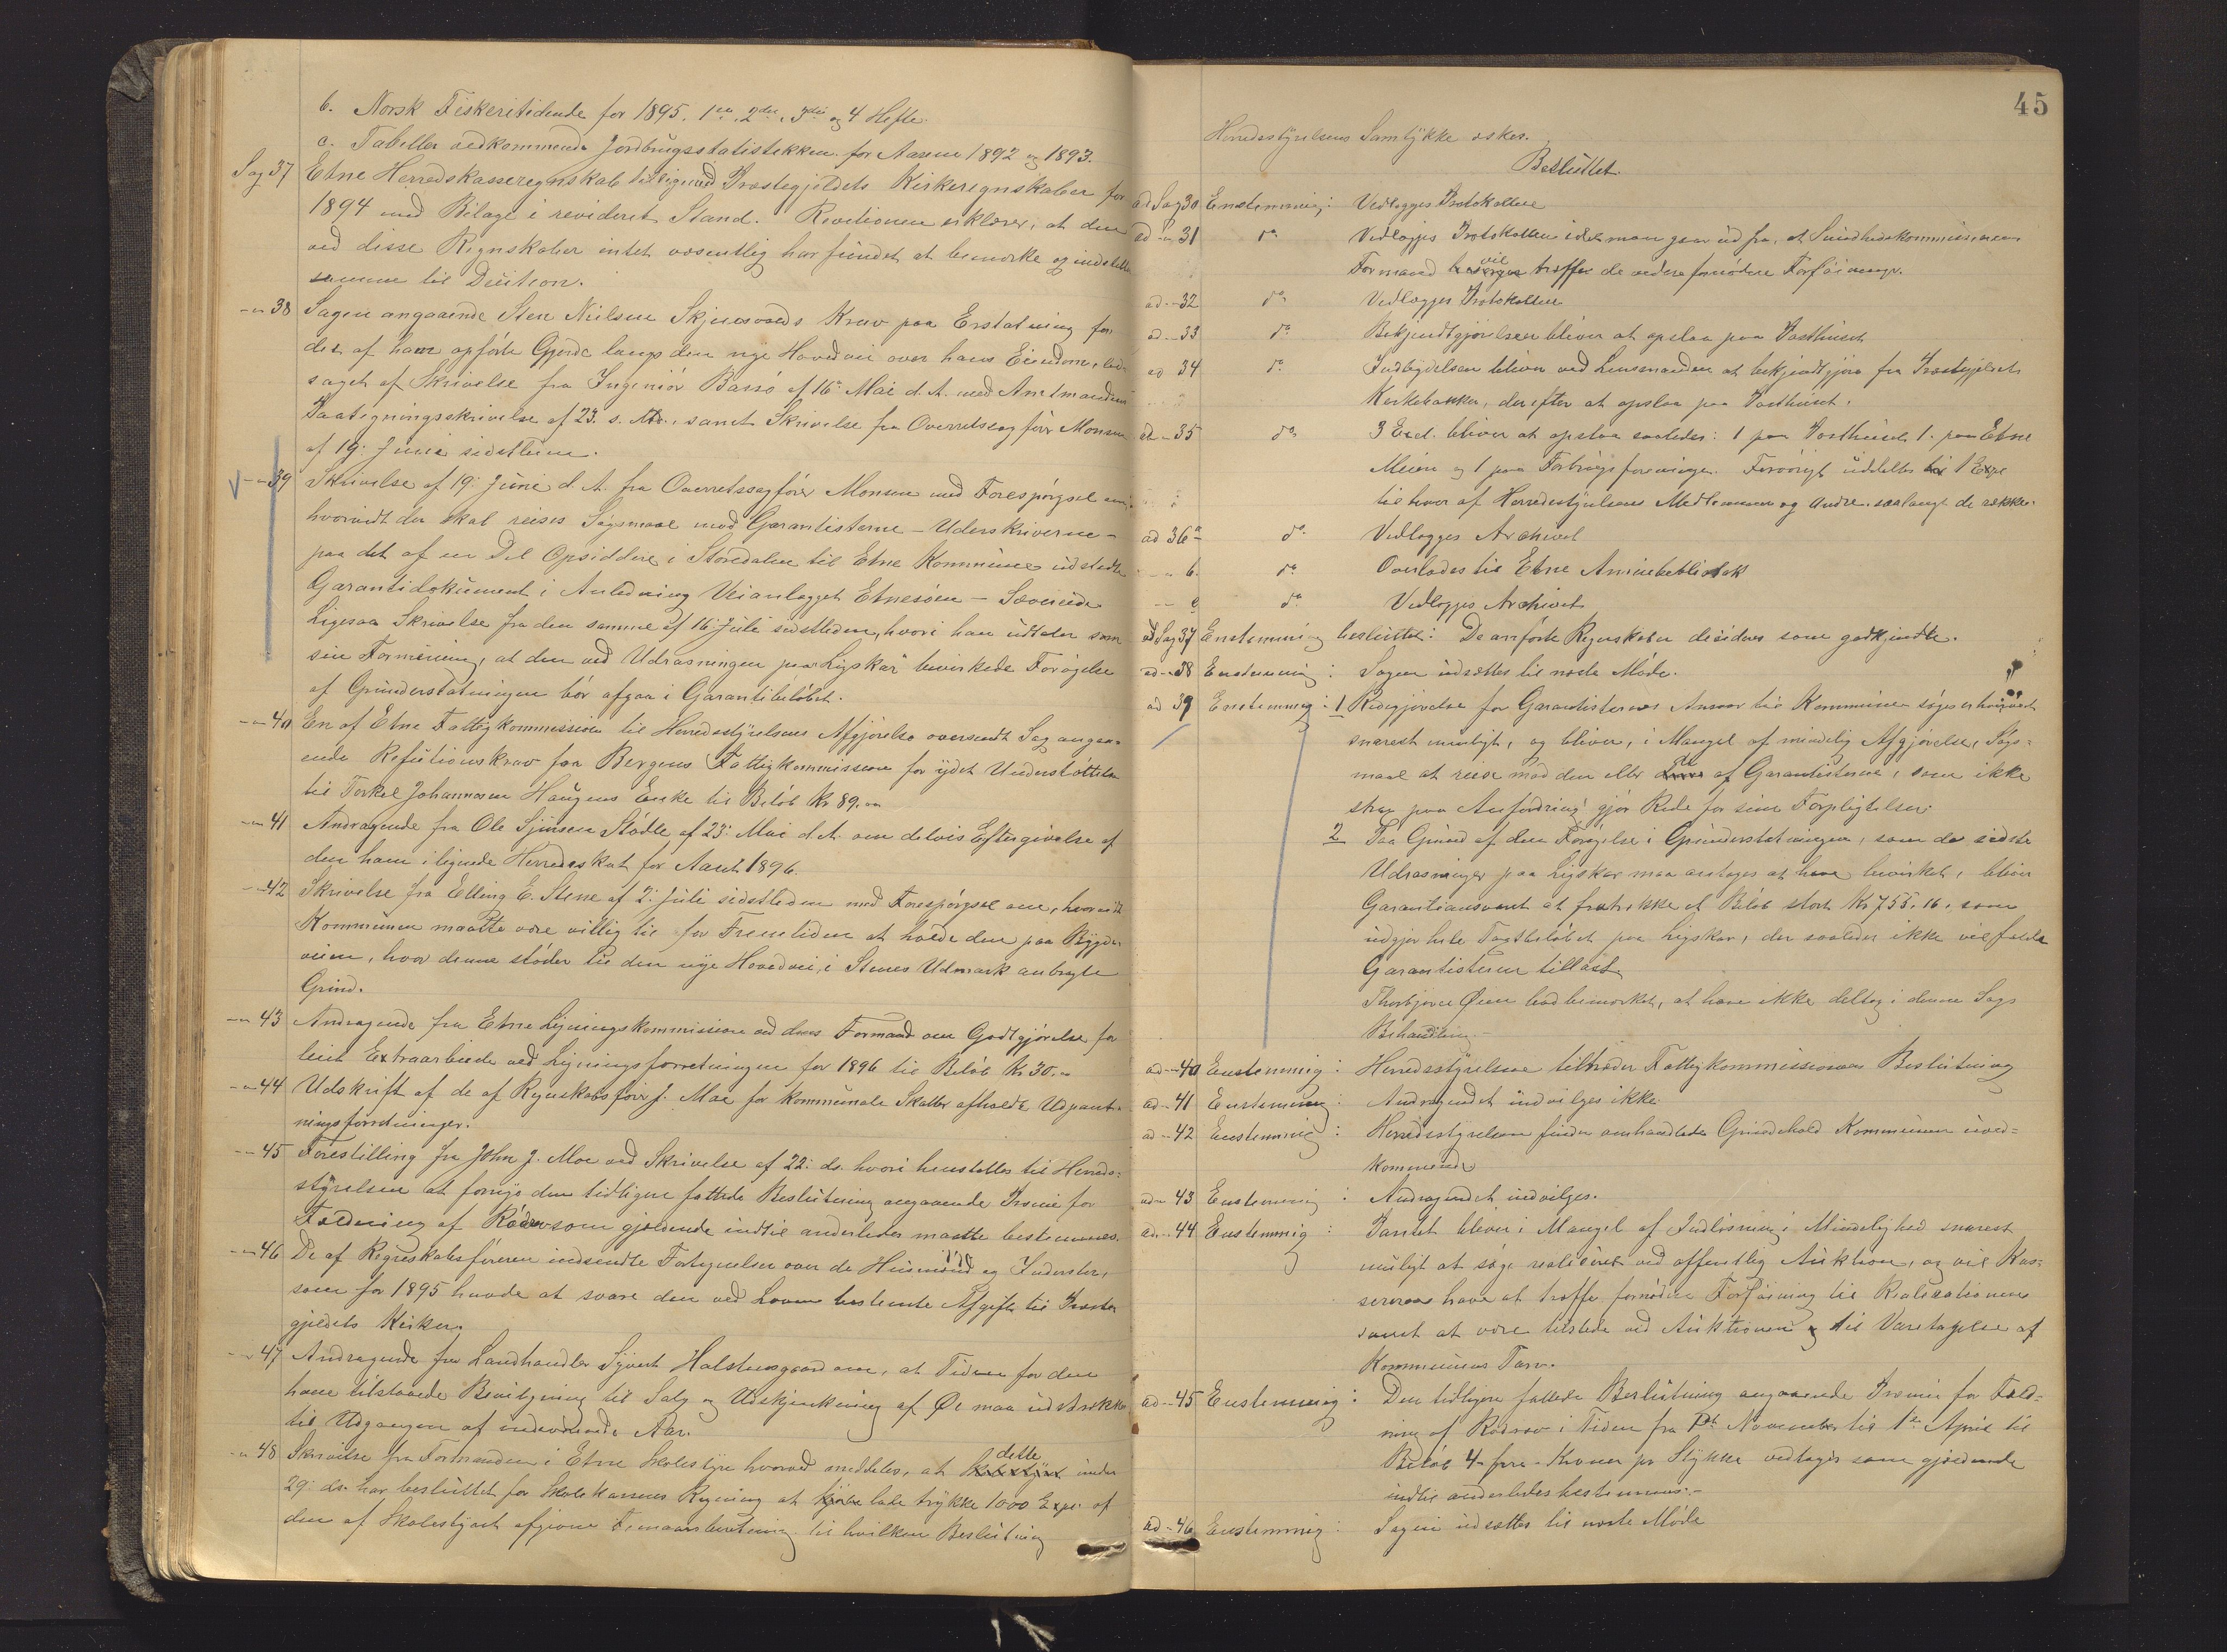 b. Norsk Fiskeritidende for 1895. 1ste, 2det, 3die og 4 Hefte.
c. Tabeller vedkommende Jordbrugsstatistikken for Aarene 1892 og 1893.
Sag 37 Etne Herredskasseregnskab tilligemed Præstegjeldets Kirkeregnskaber for
1894 med Bilage i revideret Stand. Revisionen erklærer, at den
ved disse Regnskaber intet væsentlig har fundet at bemærke og indstiller
samme til Decision.
-"- 38 Sagen angaaende Sten Nielsen Skjensvolds Krav paa Erstatning for
det af ham opførte Gjerde langs den nye Hovedvei over hans Eiendom, led-
saget af Skrivelse fra Ingeniør Barsø af 16de Mai d. A. med Amtmandens
Paategningsskrivelse af 23. s. Md., samt Skrivelse fra Overretssagfører Monsen
af 19. Juni sidstleden.
-"- 39 Skrivelse af 19. Juni d. A. fra Overretssagfører Monsen med Forespørgsel om,
hvorvidt der skal reises Søgsmaal mod Garantisterne - Underskriverne -
paa det af en Del Opsiddere i Stordalen til Etne Kommune udstedte
Garantidokument i Anledning Veianlægget Etnesøen - Sævereide
Ligesaa Skrivelse fra den samme af 16 Juli sidstleden, hvori han udtaler som
sin Formening, at den ved Udrasningen paa "Ligskar" bevirkede Forøgelse
af Grunderstatningen bør afgaa i Garantibeløbet.
-"- 40 En af Etne Fattigkommission til Herredsstyrelsens Afgjørelse oversendt Sag angaa-
ende Refutionskrav fra Bergens Fattigkommission for ydet Understøttelse
til Torkel Johannesen Haugens Enke til Beløb Kr 89.00
-"- 41 Andragende fra Ole Sjursen Stødle af 23. Mai d. A. om delvis Eftergivelse af
den ham ilignede Herredsskat for Aaret 1896.
-"- 42 Skrivelse fra Elling E. Stene af 2. Juli sidstleden med Forespørgsel om, hvorvidt
Kommunen maatte være villig til for Fremtiden at holde den paa Bygde-
veien, hvor denne støder til den nye Hovedvei, i Stenes Udmark anbragte
Grind.
-"- 43 Andragende fra Etne Ligningskommission ved dens Formand om Godtgjørelse for
leiet Extraarbeide ved Ligningsforretningen for 1896 til Beløb Kr 30.00
-"- 44 Udskrift af de af Regnskabsfører J. Moe for kommunale Skatter afholdte Udpant-
ningsforretninger.
-"- 45 Forestilling fra John J. Moe ved Skrivelse af 22. ds. hvori henstilles til Herreds-
styrelsen at fornye den tidligere fattede Beslutning angaaende Præmie for
Fældning af Ræv som gjældende indtil anderledes maatte bestemmes.
-"- 46 De af Regnskabsføreren indsendte Fortegnelser over de Husmænd og Inderster,
som for 1895 havde at svare den ved Loven bestemte Afgift til Præste-
gjeldets Kirker.
-"- 47 Andragende fra Landhandler Sjovat Halstensgaard om, at Tiden for den
ham tilstaaede Bevilgning til Salg og Udskjænkning af Øl maa udstrækkes
til Udgangen af indeværende Aar.
-"- 48 Skrivelse fra Formanden i Etne Skolestyre hvorved meddeles, at dette under
29. ds. har besluttet for Skolekassens Regning at lade trykke 1000 Expl. af
den af Skolestyret afgivne Femaarsberetning til hvilken Beslutning
45
Herredsstyrelsens Samtykke æskes.
Besluttet.
ad Sag 30 Enstemmig: Vedlægges Protokollen
ad -"- 31 do Vedlægges Protokollen idet man gaar ud fra, at Sundhedskommissionens
Formand vil træffe de videre fornødne Forføininger.
ad -"- 32 do Vedlægges Protokollen
ad -"- 33 do Bekjendtgjørelsen bliver at opslaa paa Posthuset
ad 34 do Indbydelsen bliver ved Lensmanden at bekjendtgjøre fra Præstegjeldets
Kirkebakker, derefter at opslaa paa Posthuset.
ad - 35 do 3 Exl. bliver at opslaa saaledes: 1 paa Posthuset, 1 paa Etne
Meieri og 1 paa Forbrugsforeningen. Forøvrigt uddeles 1 Expl
til hver af Herredsstyrelsens Medlemmer og Andre saalangt de rækker.
ad 36 a do Vedlægges Archivet
-"- b. do Overlades til Etne Amniebibliotek
-"- c do Vedlægges Archivet
ad Sag 37 Enstemmig besluttet: De anførte Regnskaber decideres som godkjendte.
ad -"- 38 Enstemmig: Sagen udsættes til næste Møde.
ad 39 Enstemmig: 1 Redegjørelse for Garantisternes Ansvar til Kommunen søges erhvervet
snarest muligt, og bliver, i Mangel af mindelig Afgjørelse, Søgs-
maal at reise mod den eller de af Garantisterne, som ikke
strax paa Anfordring gjør Rede for sine Forpligtelser.
2 Paa Grund af den Forøgelse i Grunderstatningen, som de sidste
Udrasninger paa Ligskar maa antages at have bevirket, bliver
Garantiansvaret at fratrække et Beløb stort Kr 755.16, som
udgjør hele Taxtbeløbet paa Ligskar, der saaledes ikke vil falde
Garantisterne tillast.
Thorbjørn Øien bad bemærket, at han ikke deltog i denne Sags
Behandling.-
ad -"- 40 Enstemmig: Herredsstyrelsen tiltræder Fattigkommissionens Beslutning
ad -"- 41 Enstemmig: Andragendet indvilges ikke.
ad -"- 42 Enstemmig: Herredsstyrelsen finder omhandlede Grindehold Kommunen uved-
kommende
ad -"- 43 Enstemmig: Andragendet indvilges.
ad -"- 44 Enstemmig: Pantet bliver i Mangel af Indløsning i Mindelighed snarest
muligt at søge realiseret ved offentlig Auktion, og vil Kas-
sereren have at træffe fornøden Forføining til Realisationen
samt at være tilstede ved Auktionen til Varetagelse af
Kommunens Tarv.
ad -"- 45 Enstemmig: Den tidligere fattede Beslutning angaaende Præmie for Fæld-
ning af Rødræv i Tiden fra 1ste November til 1ste April til
Beløb 4 - fire - Kroner pr Stykke vedtages som gjældende
indtil anderledes bestemmes.-
ad -"- 46 Enstemmig: Sagen udsættes til næste Møde